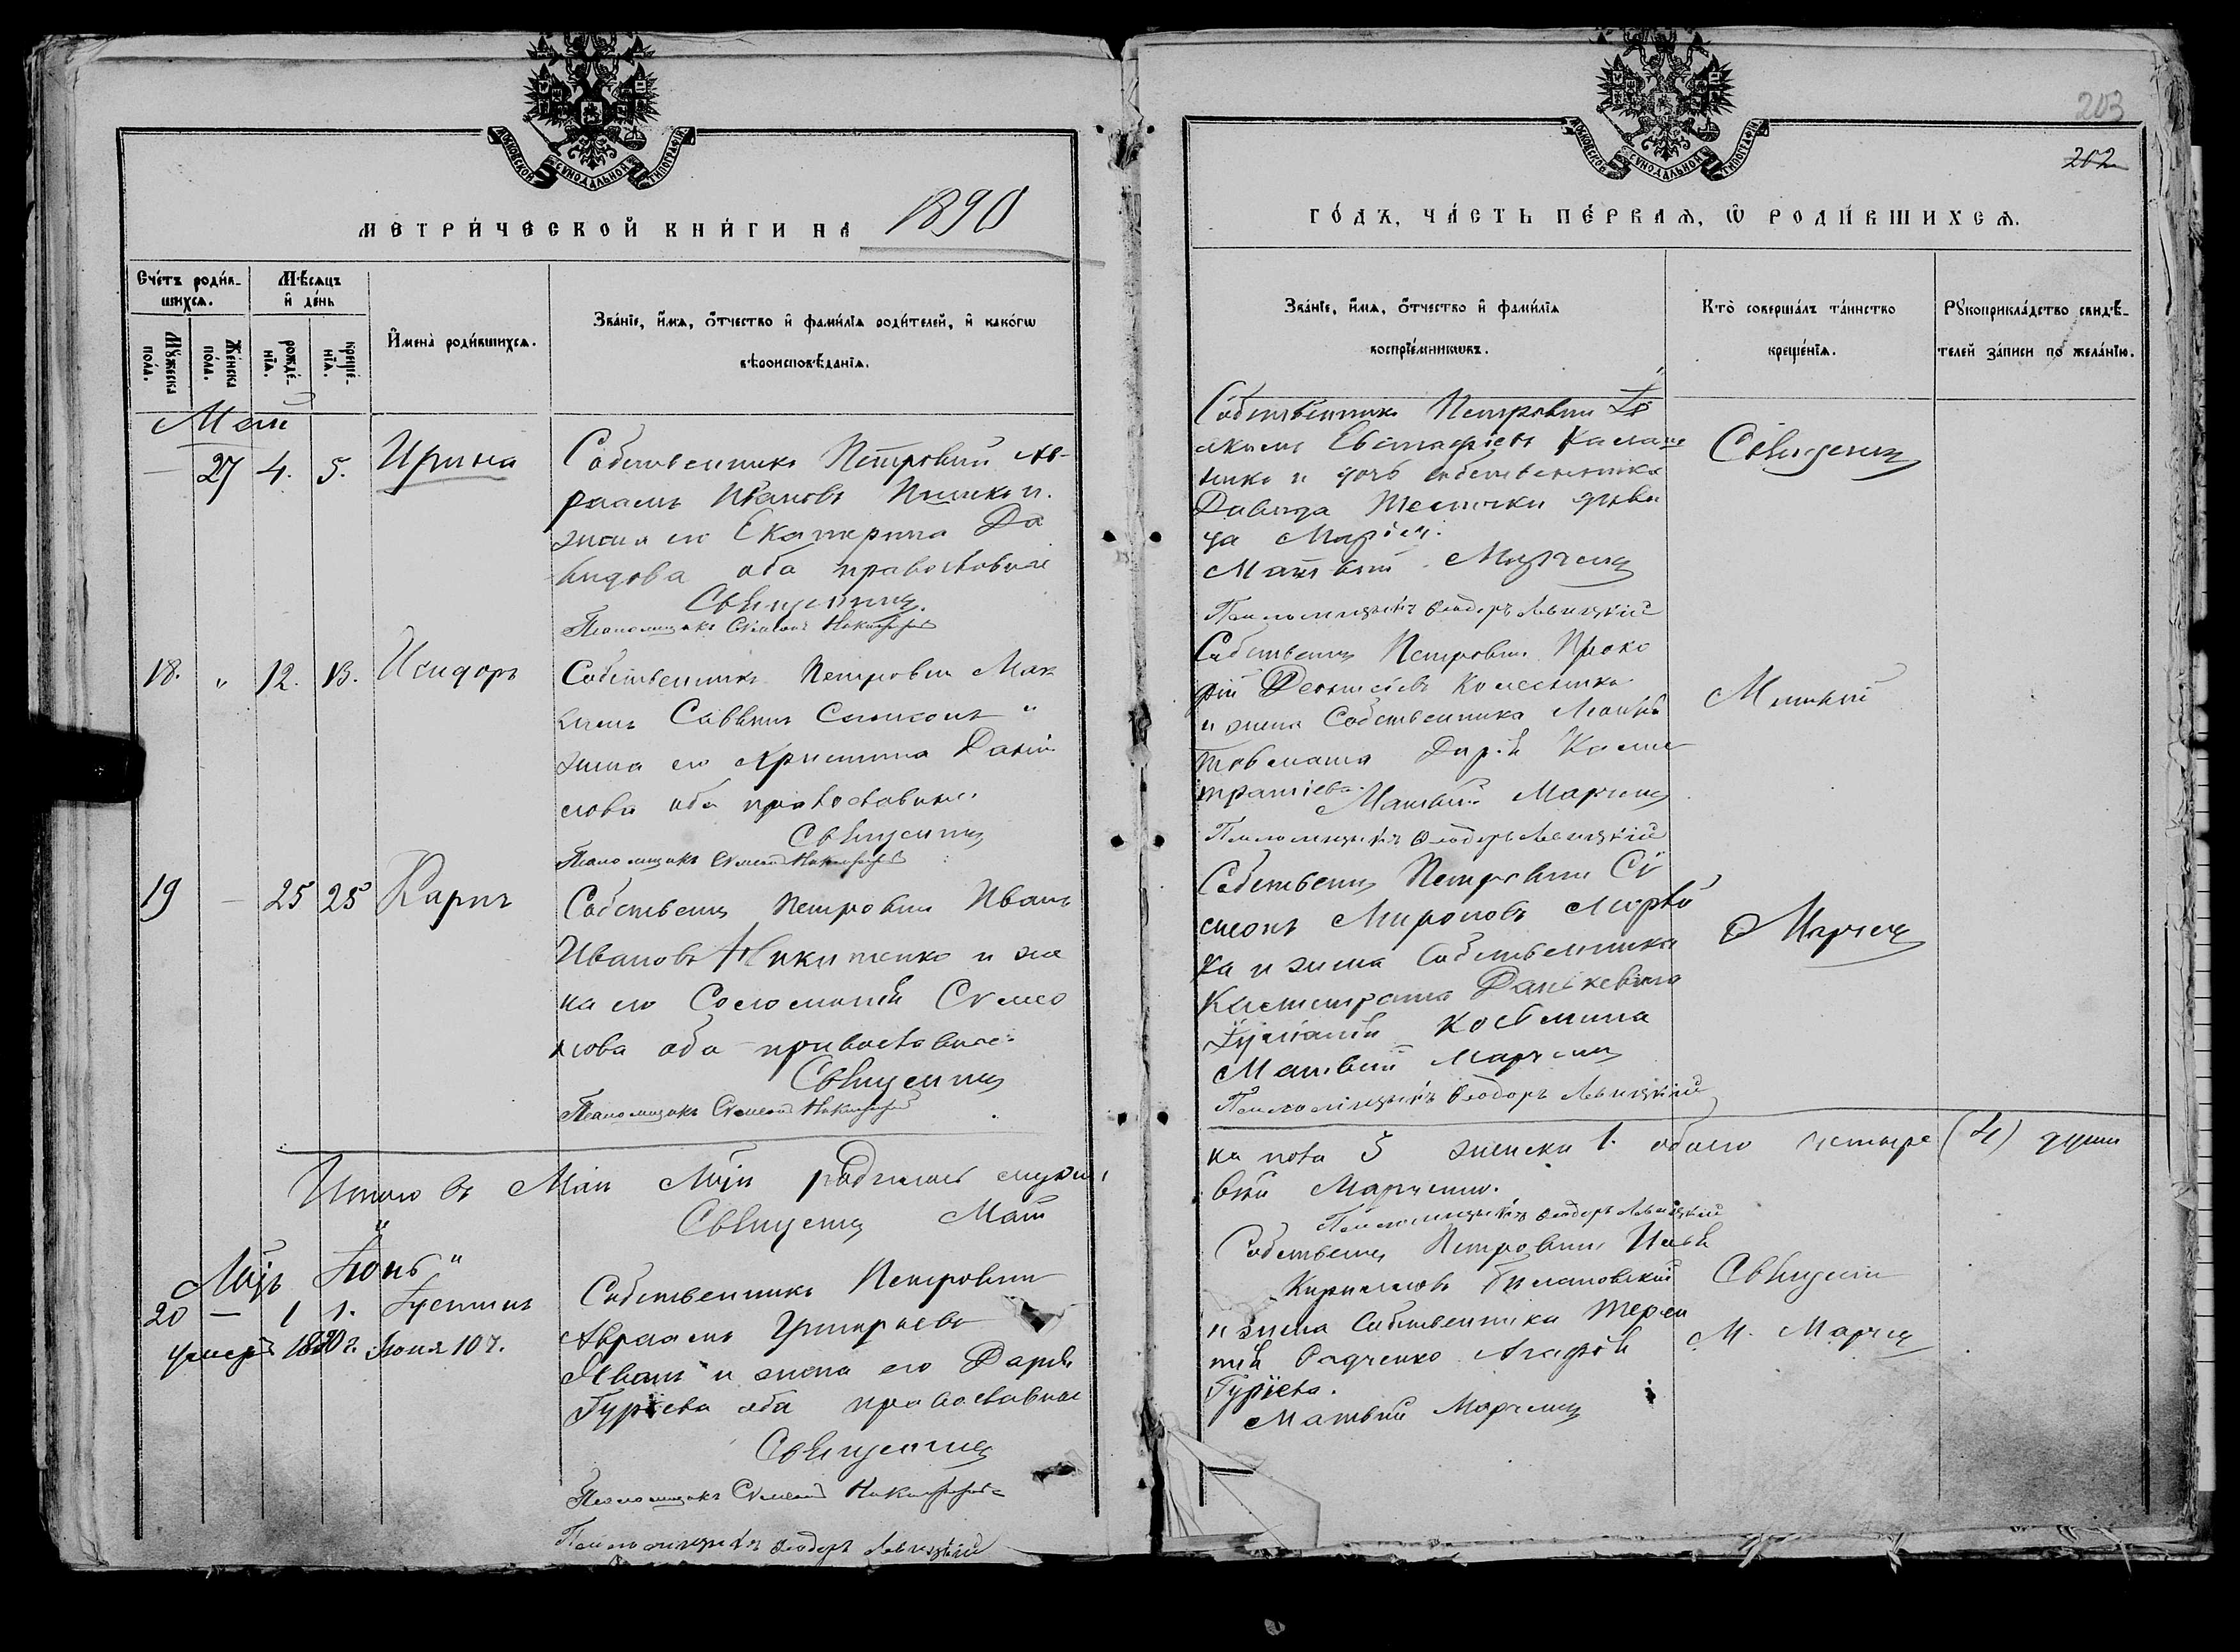 МОСКОВСКОЙ СѴНОДАЛЬНОЙ ТИПОГРАФІИ
МЕТРИ́ЧЕСКОЙ КНИ́ГИ НА 1890
Сче́тъ роди́в-
шихсѧ.
Мѣ́сѧцъ
и҆ де́нь
Мꙋ́жеска
по́ла.
Же́нска
по́ла.
рожде́-
нїѧ.
креще́-
нїѧ.
И҆мена̀ роди́вшихсѧ.
Зва́нїе, и҆́мѧ, ѻ҆́тчество и҆ фами́лїѧ роди́телей, и҆ како́гѡ
вѣроисповѣ́данїѧ.
Май
— 27 4. 5. Ирина
Собственникъ Петровки Ав-
раамъ Ивановъ
жена его Екатерина Да
видова оба православные
Священникъ
Псаломщикъ Сѵмеонъ Никифоровъ
18. " 12. 13. Исидоръ
Собственникъ Петровки Мак
симъ Саввинъ
жена его Христина Дании
лова оба православные
Священникъ
Псаломщикъ Сѵмеонъ Никифоровъ
19 — 25 25 Карпъ
Собственникъ Петровки Иванъ
Ивановъ Никитенко и же
на его Соломонія Сѵмео
нова оба православные
Священникъ
Псаломщикъ Сѵмеонъ Никифоровъ
Итого въ Маѣ родилось мужес
Священникъ Мат
Іюнь
20 — 1 1. Іустинъ
умеръ 1890 г. Іюня 10 ч.
Собственникъ Петровки
Авраамъ
и жена его Дарія
Гурїева оба православные
Священникъ
Псаломщикъ Сѵмеонъ Никифоровъ
Псаломщикъ Ѳеодоръ Левицкій
203
202
МОСКОВСКОЙ СѴНОДАЛЬНОЙ ТИПОГРАФІИ
ГО́ДЪ, ЧА́СТЬ ПЕ́РВАѦ, Ѡ҆ РОДИ́ВШИХСѦ.
Зва́нїе, и҆́мѧ, ѻ҆́тчество и҆ фами́лїѧ
воспрїе́мникѡвъ.
Кто̀ соверша́лъ та́инство
креще́нїѧ.
Рꙋкоприкла́дство свидѣ́-
телей за́писи по жела́нїю.
Собственникъ Петровки Іо
акимъ Евстафіевъ
и дочь собственника
Давида дѣви
ца Марія.
Матвѣй Марченко
Псаломщикъ Ѳеодоръ Левицкій
Священникъ
Собственникъ Петровки Проко
фій Деонисіевъ Колесникъ
и жена Собственника
Дарія Калис
тратіева.
Матвѣй Марченко
Псаломщикъ Ѳеодоръ Левицкій
Матвѣй
Собственникъ Петровки Сѵ
меонъ Мироновъ
ка и жена Собственника
Калистрата
Іуліанія Косьмина
Матвѣй Марченко
Псаломщикъ Ѳеодоръ Левицкій
Марченко
ка пола 3 женска 1. обоего четыре (4) души
вѣй Марченко.
Псаломщикъ Ѳеодоръ Левицкій
Собственникъ Петровки
Кирилловъ
и жена Собственника Терен
тія Радченко Агафія
Гурїева.
Матвѣй Марченко
Священникъ
М. Марченко